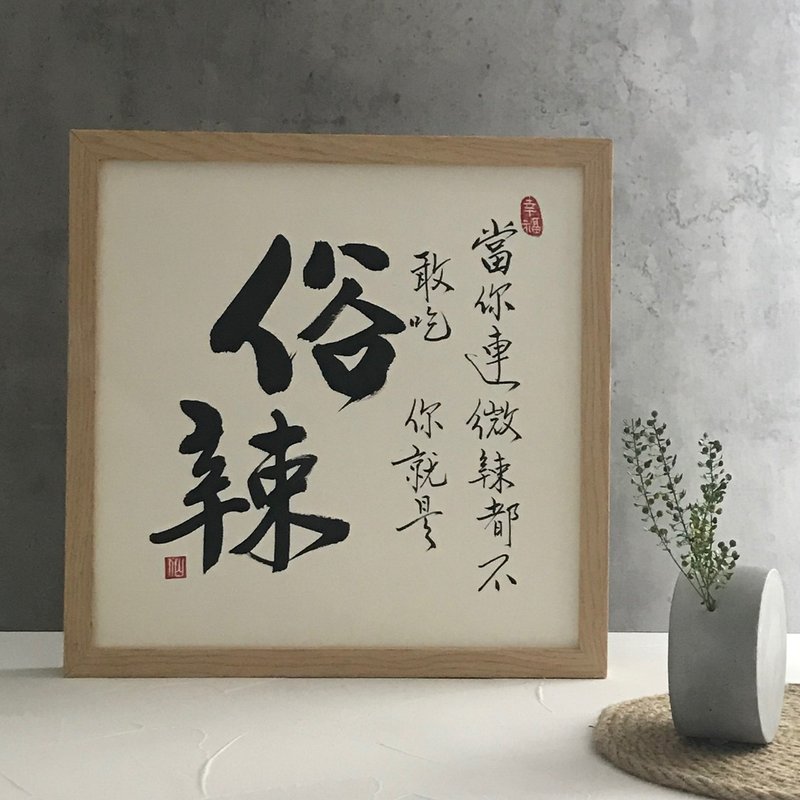 幸福
當你連微辣都不
敢吃 你就是
俗辣
仙